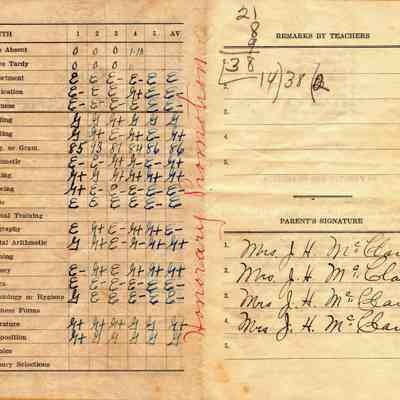 NTH 1 2 3 4 5 AV.
Absent 0 0 0 1-18
Tardy 0 0 0
ortment E E E- E E E
ication E- E- E G+ E- E-
ness E- E- E- E- E- E-
ding G G G+ G G G
ling G G+ E- G+ E- G+
, or Gram. 85 93 87 84 86 86
metic E- E- G+ E-
ing G+ G G+ G+ G+ G+
wing G+ E- E- E- E-
ic E E E E E- E
ual Training
graphy E G+ E G+ E- G+
tal Arithmetic G G+ E-
ning
ory E- G+ E G+ E- G+
cs E E- E- E- E- E-
siology or Hygiene G E E E- E- E-
ness Forms
rature G+ G+ G+ G G G+
position G+ E- G+ G G G+
ncy Selections
Honorary Promotion
21
8
9
38
14)38(2
REMARKS BY TEACHERS
2.
3.
4.
5.
PARENT'S SIGNATURE
1. Mrs. J. H. McCla
2. Mrs. J. H. McCla
3. Mrs J. H. McCla
4. Mrs J. H. McCla
5.